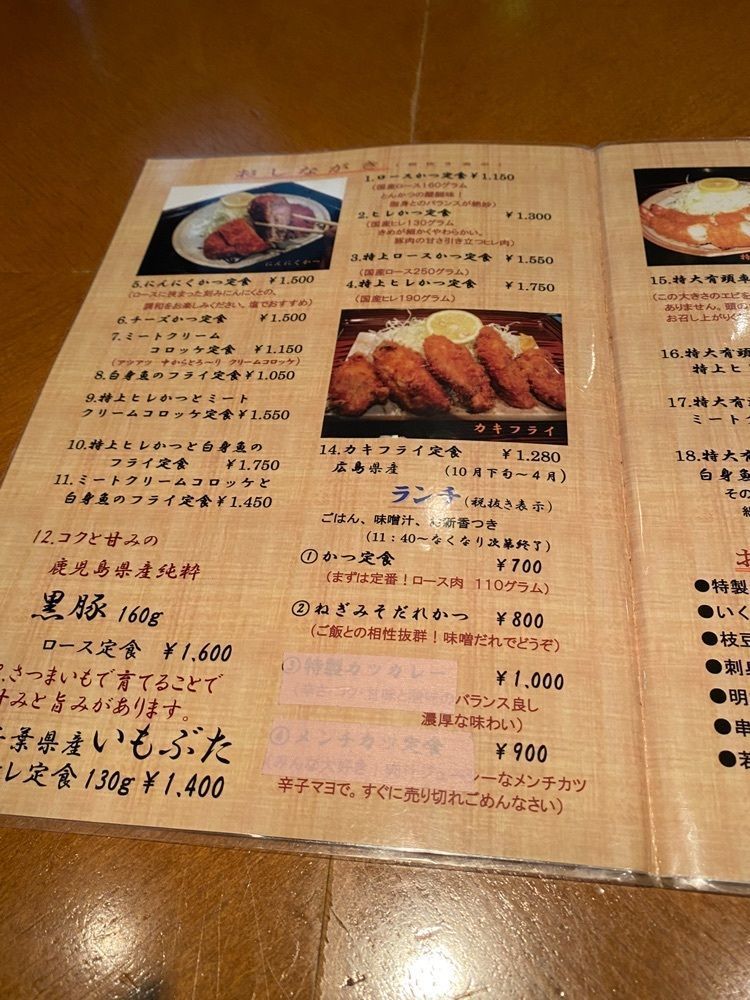 おしながき（税抜き表示）
1.ロースかつ定食 ¥1.150
（国産ロース160グラム
とんかつの醍醐味！
脂身とのバランスが絶妙）
2.ヒレかつ定食 ¥1.300
（国産ヒレ130グラム
きめが細かくやわらかい。
豚肉の甘さ引き立つヒレ肉）
3.特上ロースかつ定食 ¥1.550
（国産ロース250グラム）
4.特上ヒレかつ定食 ¥1.750
（国産ヒレ190グラム）
にんにくかつ
5.にんにくかつ定食 ¥1.500
（ロースに挟まった刻みにんにくとの、
調和をお楽しみください。塩でおすすめ）
6.チーズかつ定食 ¥1.500
7.ミートクリーム
コロッケ定食 ¥1.150
（アツアツ 中からとろ～り クリームコロッケ）
8.白身魚のフライ定食 ¥1.050
9.特上ヒレかつとミート
クリームコロッケ定食 ¥1.550
10.特上ヒレかつと白身魚の
フライ定食 ¥1.750
11.ミートクリームコロッケと
白身魚のフライ定食 ¥1.450
12.コクと甘みの
鹿児島県産純粋
黒豚 160g
ロース定食 ¥1,600
.さつまいもで育てることで
甘みと旨みがあります。
千葉県産いもぶた
ヒレ定食 130g ¥1,400
カキフライ
14.カキフライ定食 ¥1.280
広島県産 （10月下旬～4月）
ランチ（税抜き表示）
ごはん、味噌汁、お新香つき
（11：40～なくなり次第終了）
①かつ定食 ¥700
（まずは定番！ロース肉 110グラム）
②ねぎみそだれかつ ¥800
（ご飯との相性抜群！味噌だれでどうぞ）
③特製カツカレー ¥1,000
バランス良し
濃厚な味わい）
④メンチカツ定食 ¥900
シーなメンチカツ
辛子マヨで。すぐに売り切れごめんなさい）
15.特大有頭
（この大きさのエビを
ありません。頭の
お召し上がりく
16.特大有頭
特上ヒ
17.特大有
ミート
18.特大有
白身魚
その
お
●特製
●いく
●枝豆
●刺身
●明
●串
●若